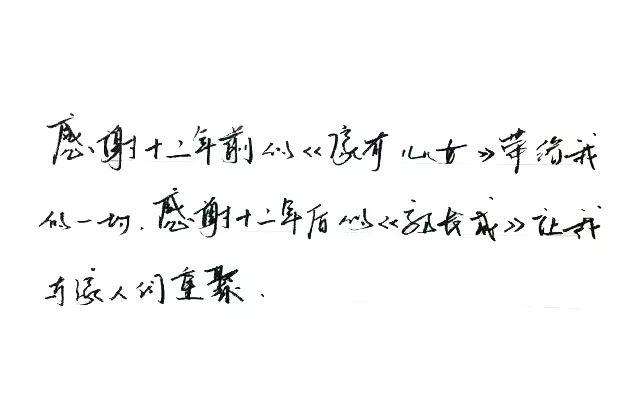 感谢十二年前的《家有儿女》带给我
的一切.感谢十二年后的《就长成》让我
与家人们重聚.